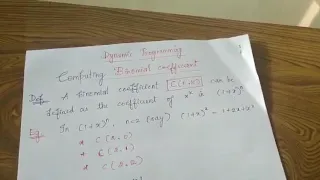 Dynamic Programming
Computing Binomial coefficient
Def: A Binomial coefficient C(n,k) can be
defined as the coefficient of xᵏ in (1+x)ⁿ
Eg: In (1+x)ⁿ, n=2 (say) (1+x)² = 1+2x+x²
C(2,0)
C(2,1)
C(2,2)